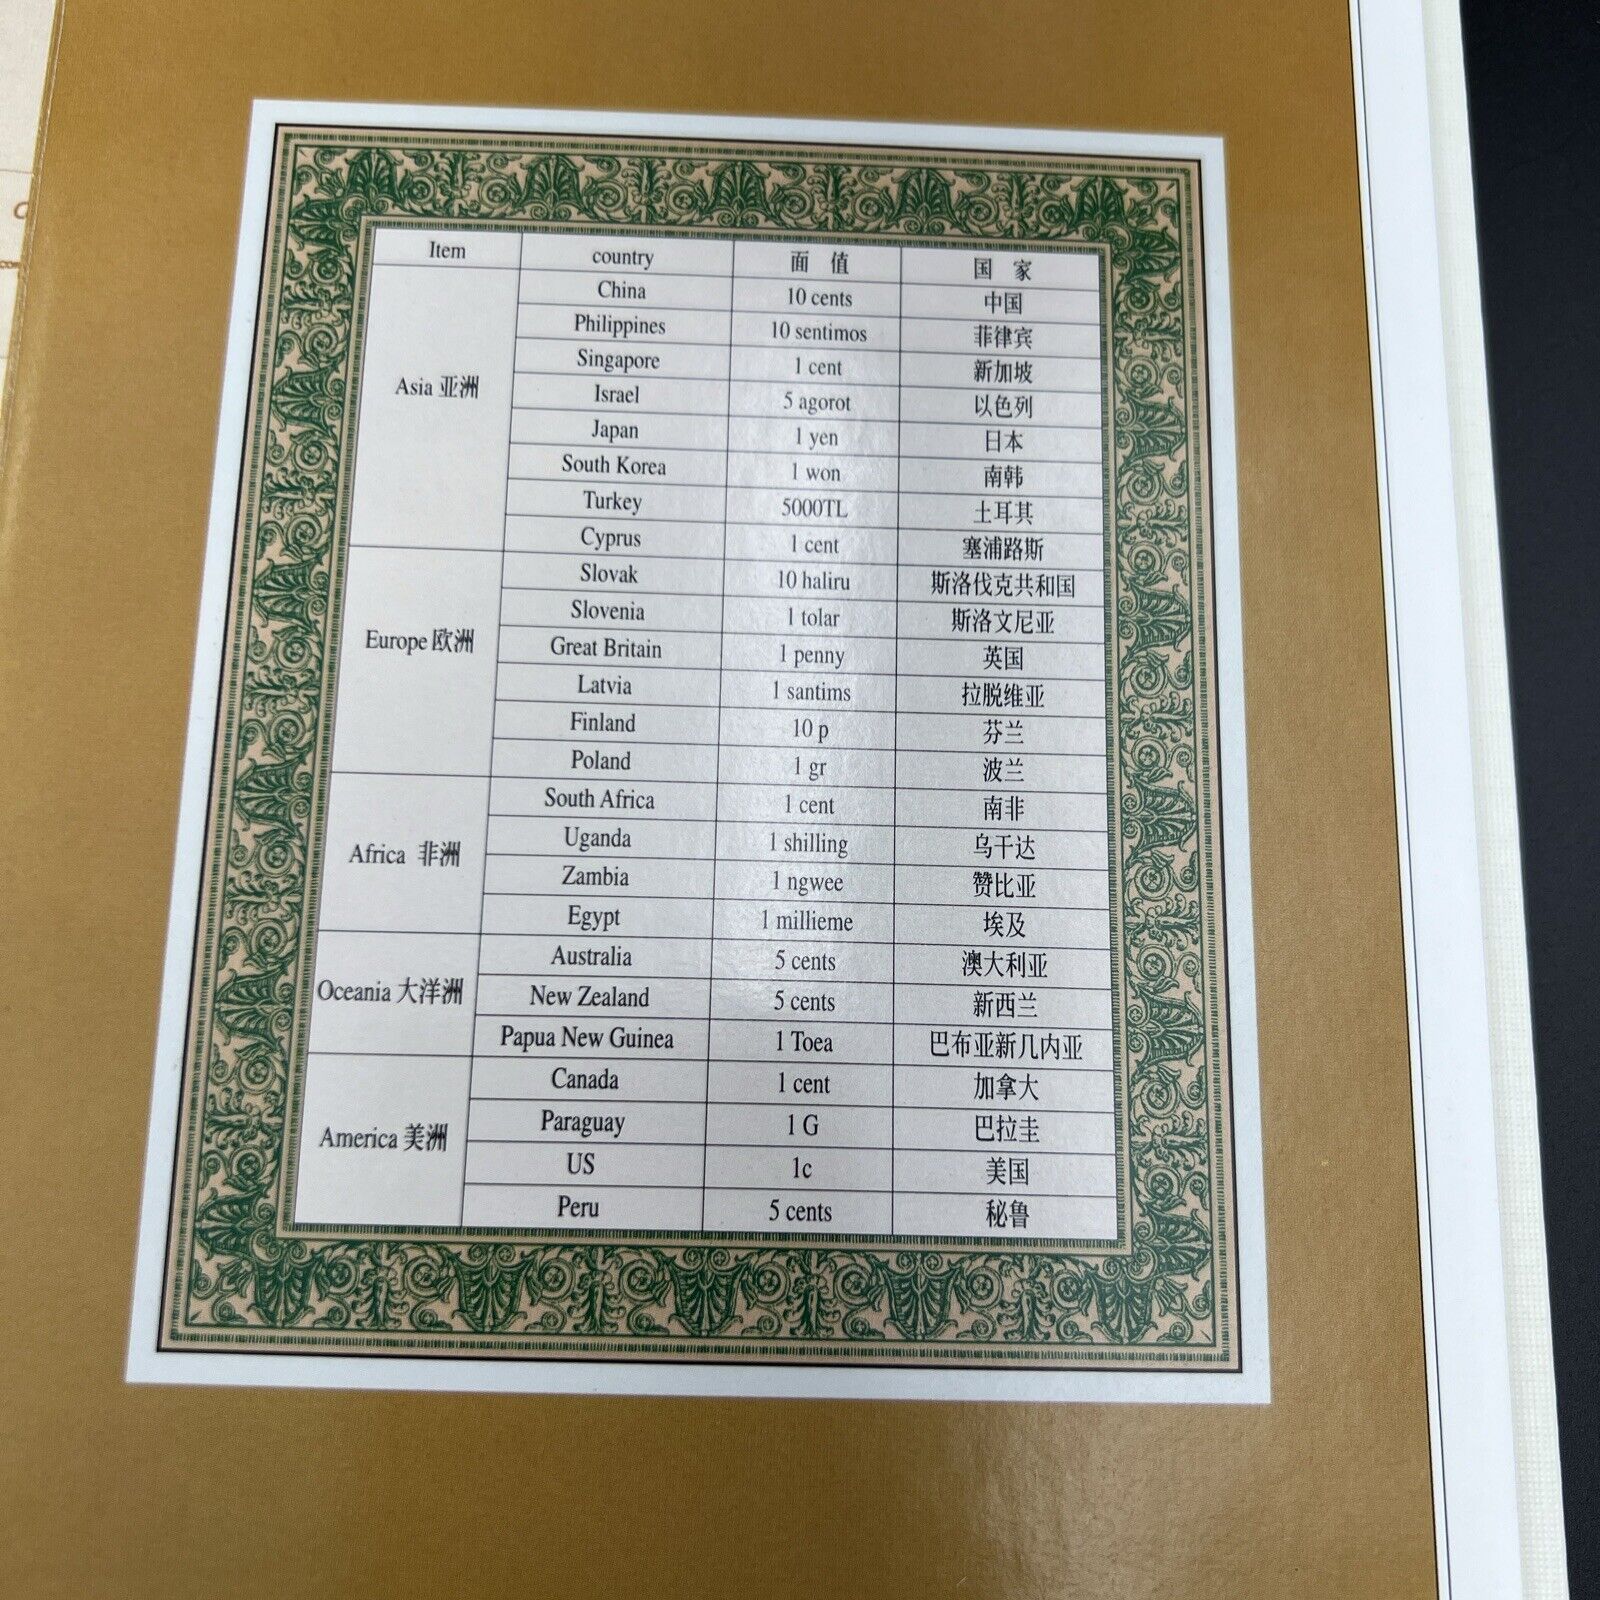 Item country 面 值 国 家
Asia 亚洲
China 10 cents 中国
Philippines 10 sentimos 菲律宾
Singapore 1 cent 新加坡
Israel 5 agorot 以色列
Japan 1 yen 日本
South Korea 1 won 南韩
Turkey 5000TL 土耳其
Cyprus 1 cent 塞浦路斯
Europe 欧洲
Slovak 10 haliru 斯洛伐克共和国
Slovenia 1 tolar 斯洛文尼亚
Great Britain 1 penny 英国
Latvia 1 santims 拉脱维亚
Finland 10 p 芬兰
Poland 1 gr 波兰
Africa 非洲
South Africa 1 cent 南非
Uganda 1 shilling 乌干达
Zambia 1 ngwee 赞比亚
Egypt 1 millieme 埃及
Oceania 大洋洲
Australia 5 cents 澳大利亚
New Zealand 5 cents 新西兰
Papua New Guinea 1 Toea 巴布亚新几内亚
America 美洲
Canada 1 cent 加拿大
Paraguay 1 G 巴拉圭
US 1c 美国
Peru 5 cents 秘鲁